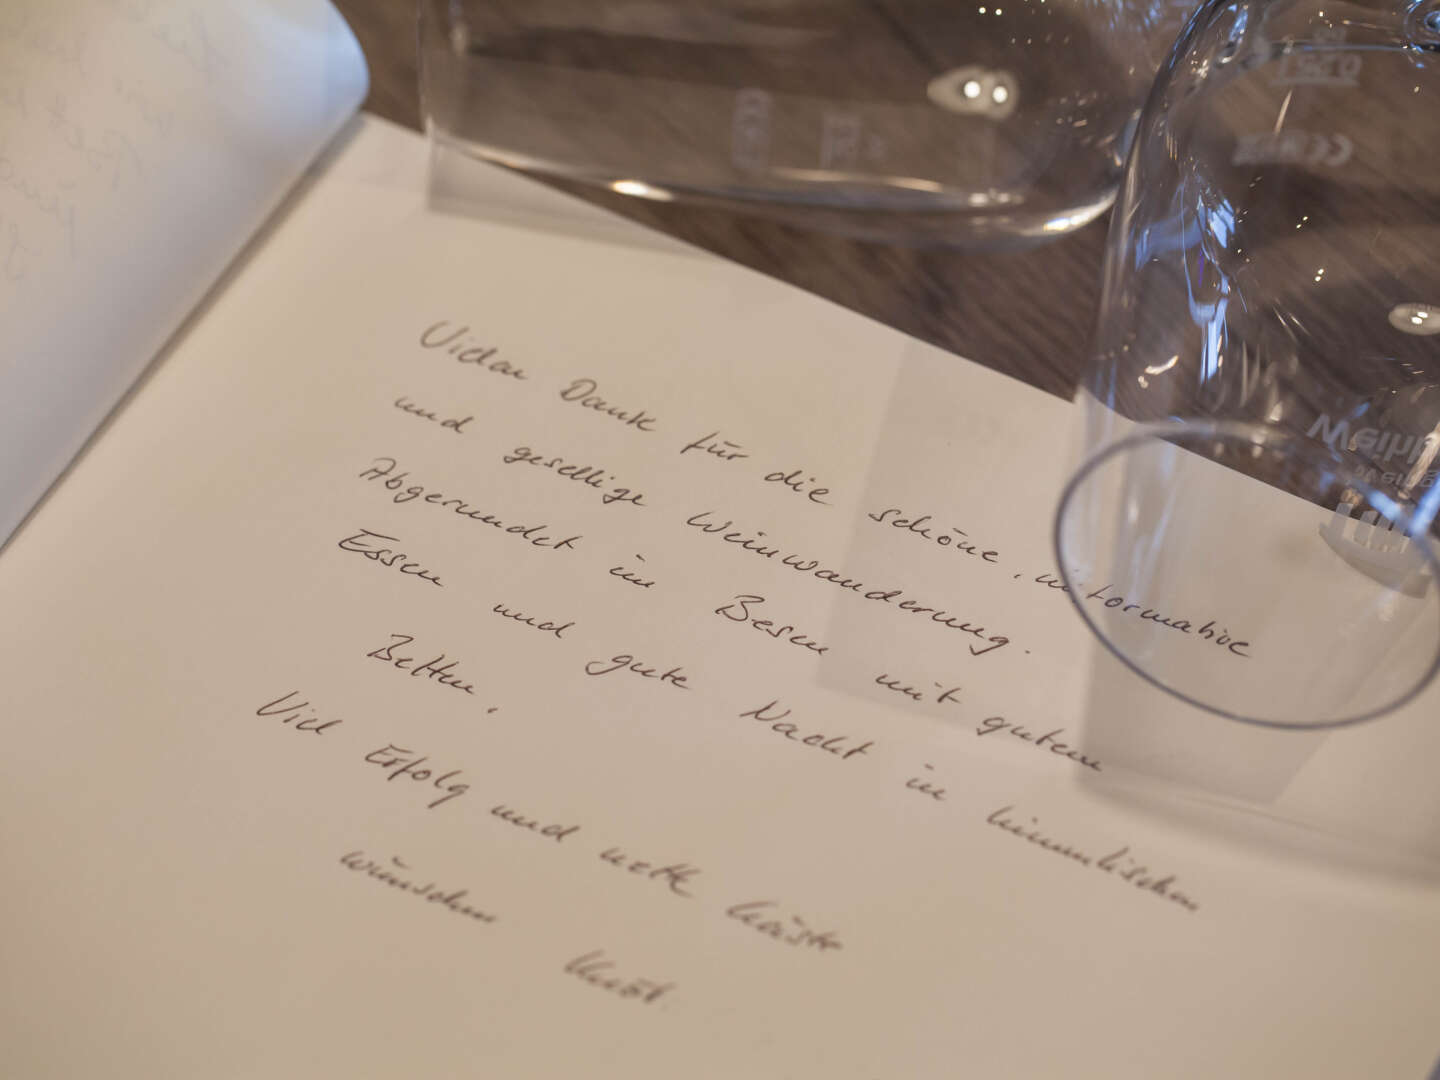 Vielen Dank für die schöne, informative
und gesellige Weinwanderung.
Abgerundet im Besen mit gutem
Essen und gute Nacht in himmlischen
Betten.
Viel Erfolg und nette Gäste
wünschen
0,25 l
CE
Weihb